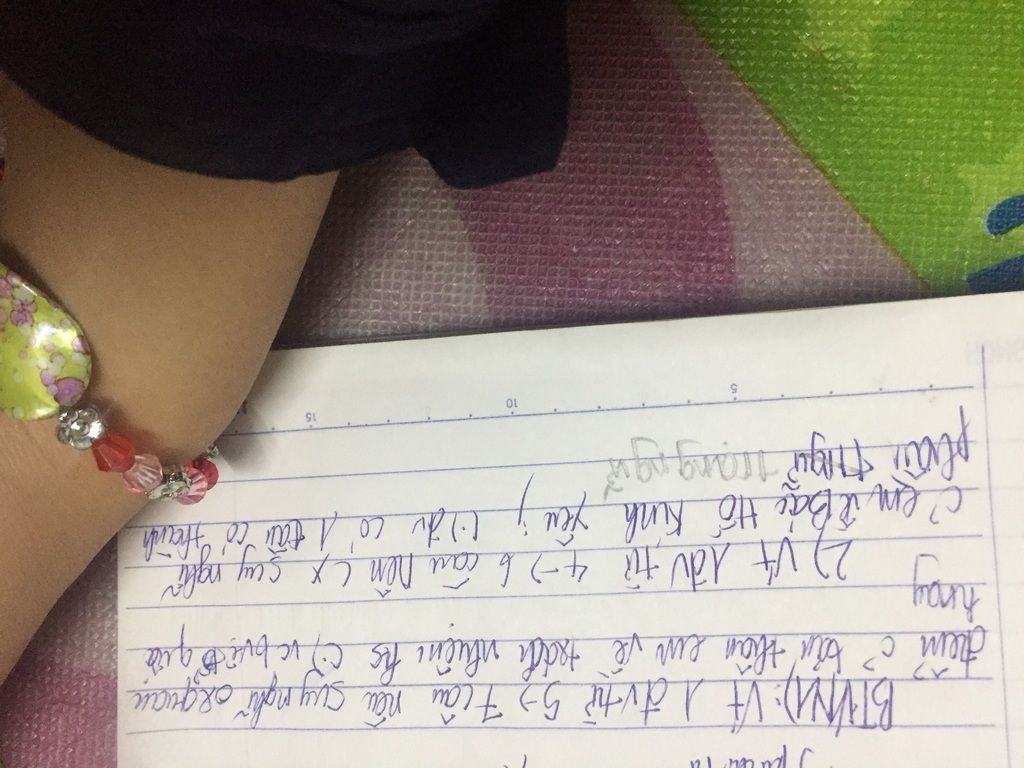 BTVN 1): Vt 1 đv từ 5 -> 7 câu nêu suy nghĩ &quan
điểm c' bản thân em về trách nhiệm hs (:) vc bvệ qiá
hnay
2) Vt 1 đv từ 4 -> 6 câu nêu cx suy nghĩ
c' em về Bác Hồ kính yêu, (:) đv có 1 câu có thành
phần trạng ngữ
5 10 15